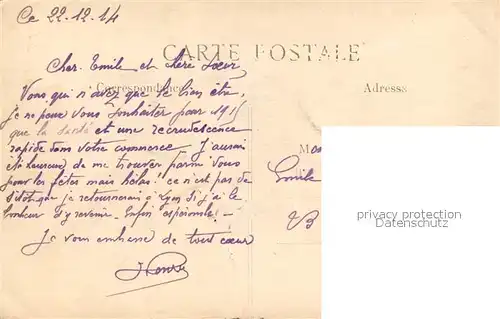 Ce 22.12.14
CARTE POSTALE
Cher Emile et chère Sœur
Correspondance
Adresse
Vous qui n'avez que le bien être,
je ne peux vous souhaiter pour 1915
que la santé et une recrudescence
rapide dans votre commerce. J'aurai
été heureux de me trouver parmi vous
pour les fêtes mais hélas! ce n'est pas de
sitôt que je retournerai à Lyon si j'ai le
bonheur d'y revenir. Enfin espérons! -
Je vous embrasse de tout cœur
Emile
privacy protection
Datenschutz